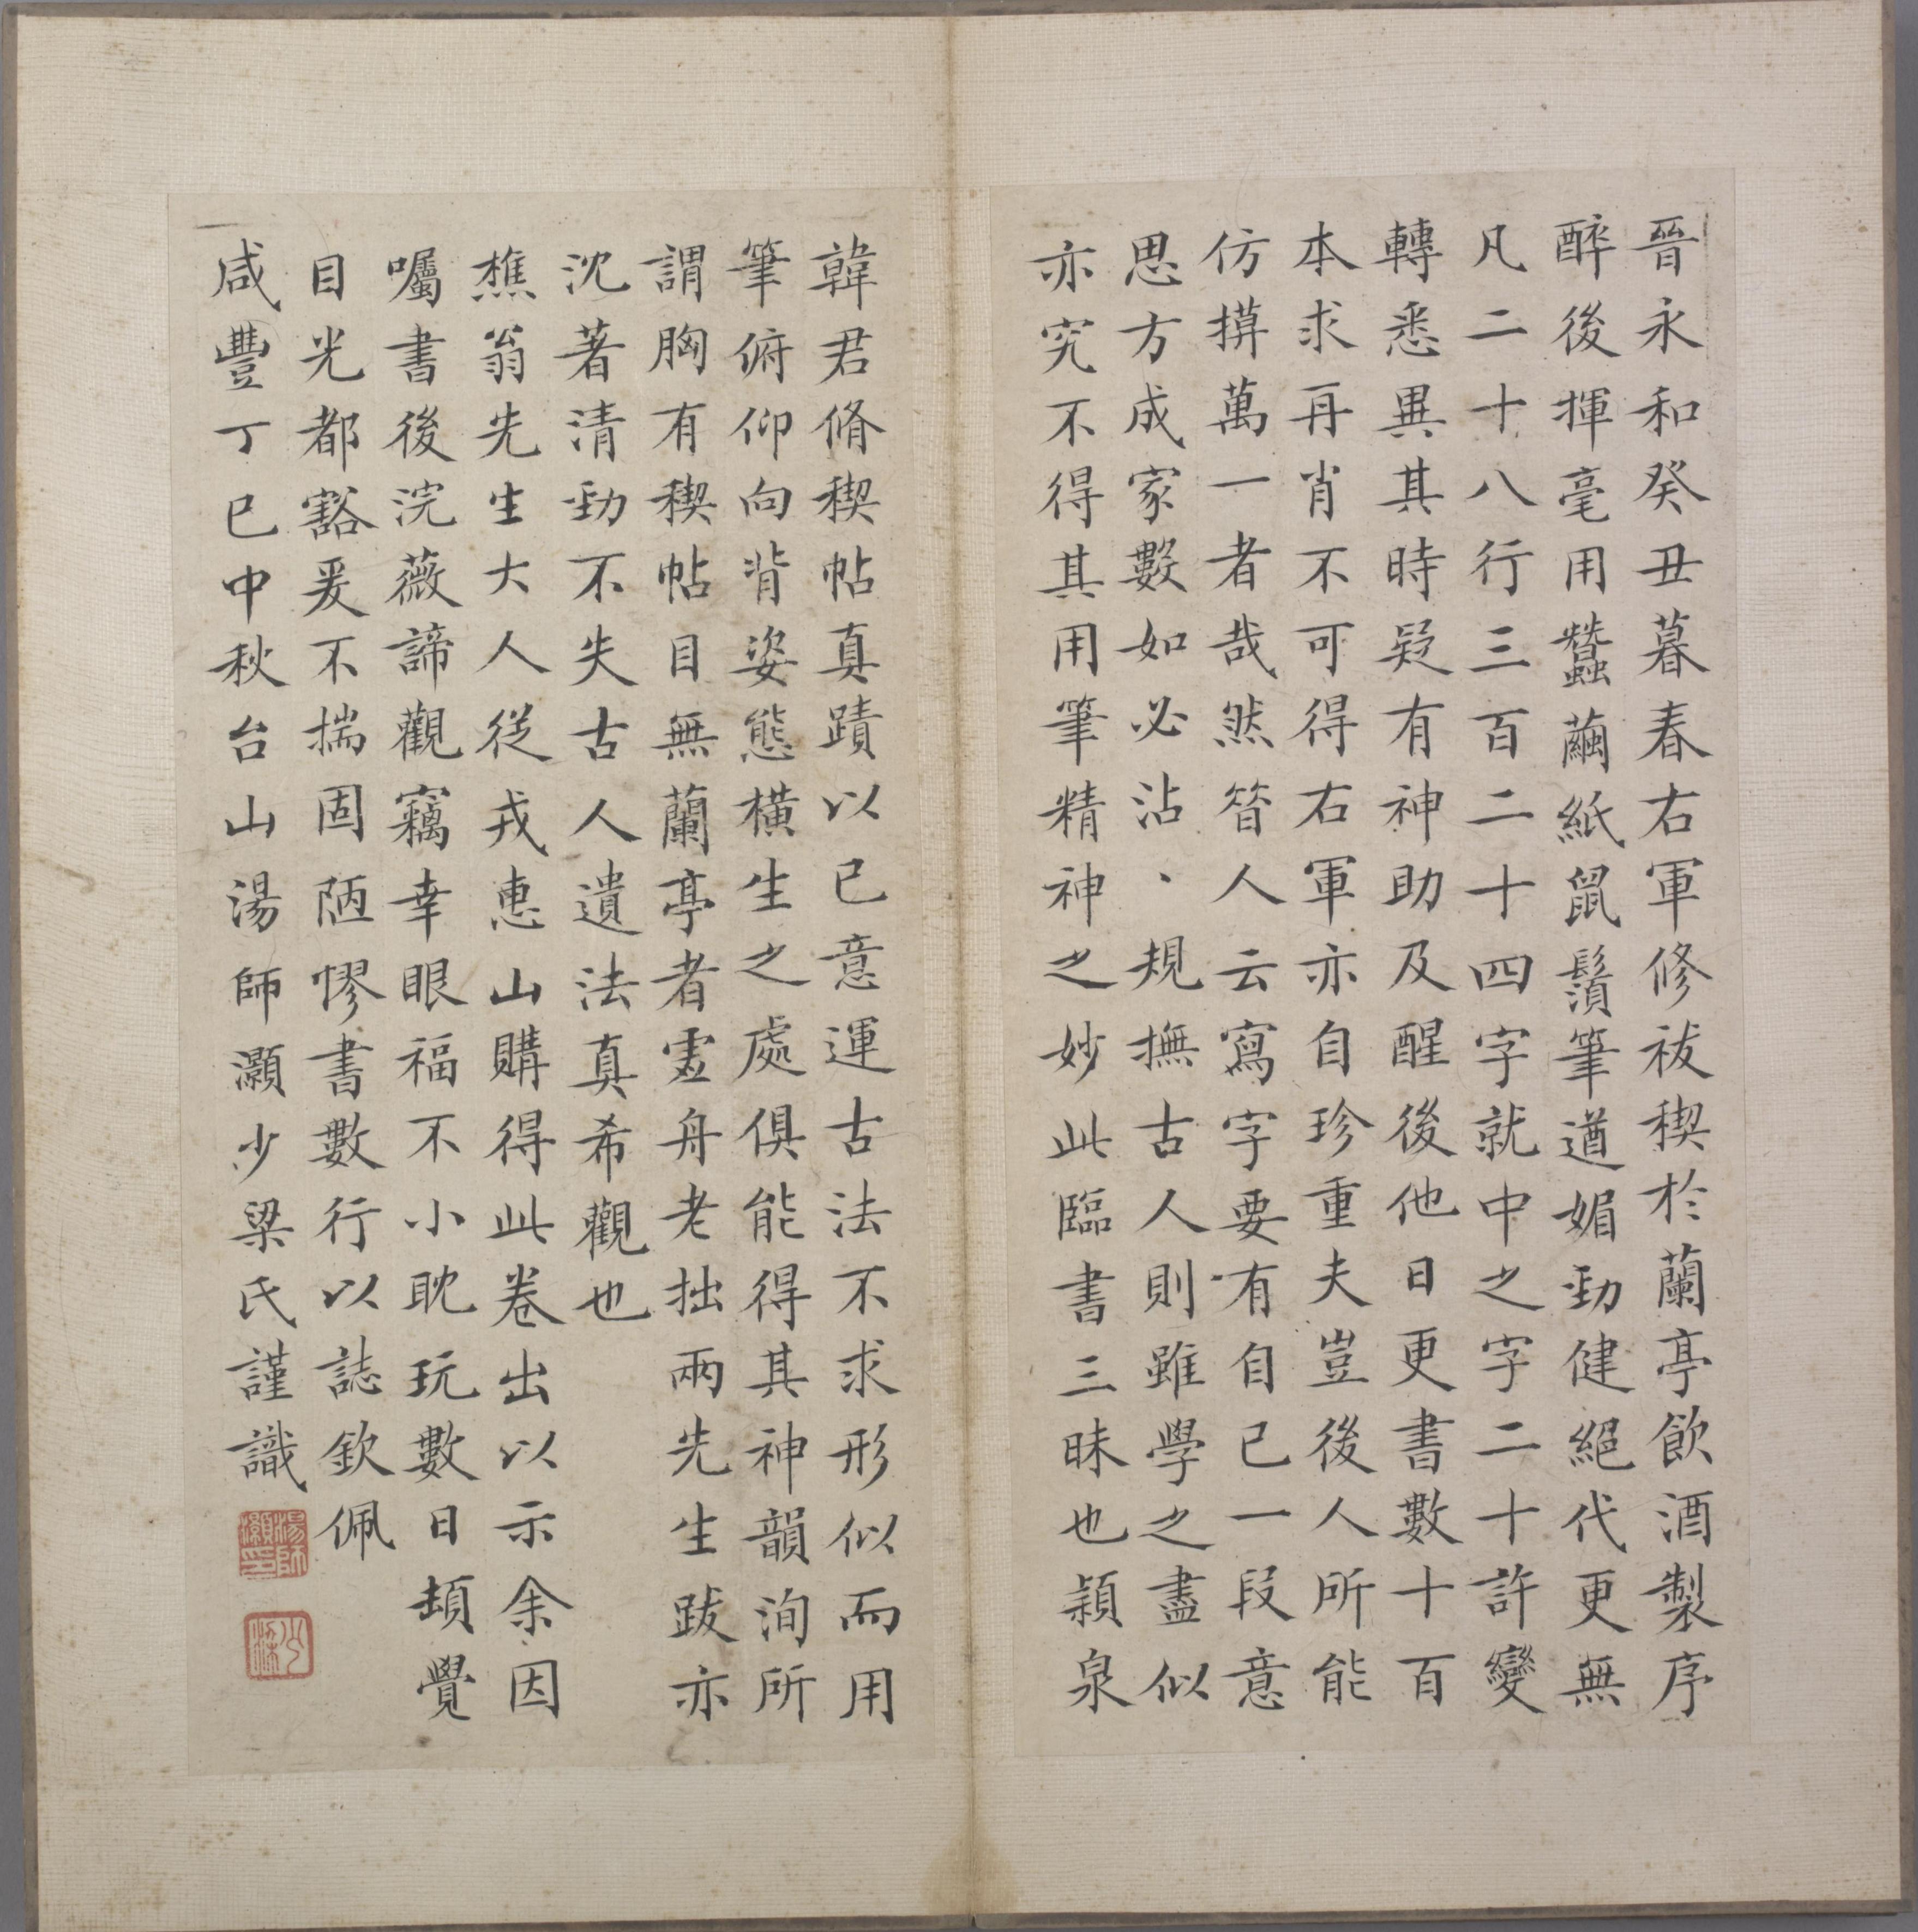 晉永和癸丑暮春右軍修祓稧於蘭亭飲酒製序
醉後揮毫用蠶繭紙鼠鬚筆遒媚勁健絕代更無
凡二十八行三百二十四字就中之字二十許變
轉悉異其時疑有神助及醒後他日更書數十百
本求再肖不可得右軍亦自珍重夫豈後人所能
仿摹萬一者哉然昝人云寫字要有自己一段意
思方成家數如必沾、規撫古人則雖學之盡似
亦究不得其用筆精神之妙此臨書三昧也潁泉
韓君脩稧帖真蹟以已意運古法不求形似而用
筆俯仰向背姿態橫生之處俱能得其神韻洵所
謂胸有稧帖目無蘭亭者虛舟老拙兩先生跋亦
沈著清勁不失古人遺法真希觀也
樵翁先生大人從戎惠山購得此卷出以示余因
囑書後浣薇諦觀竊幸眼福不小耽玩數日頓覺
目光都豁爰不揣固陋憀書數行以誌欽佩
咸豐丁巳中秋台山湯師灝少梁氏謹識
湯師灝印
少梁